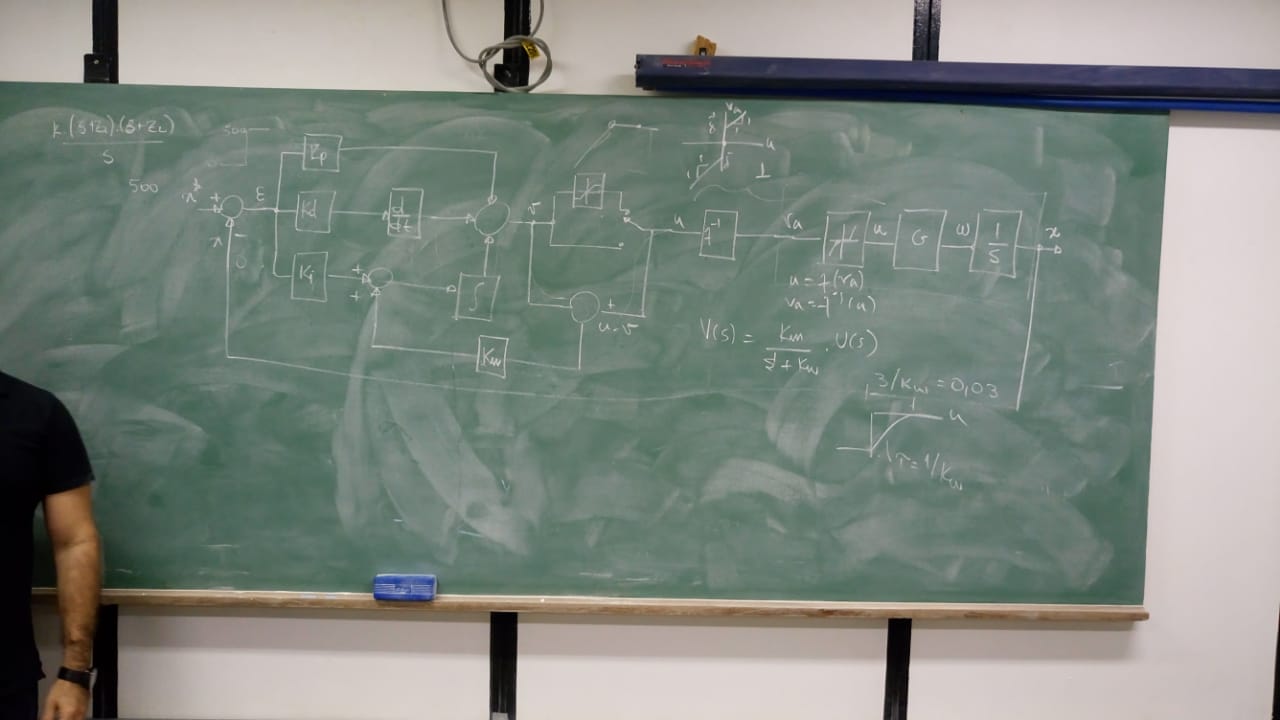 K (S+Z₁).(S+Z₂)
S
500
500
x* + ε
-
x
0
Kp
Kd
d/dt
Ki
+
+
∫
Kw
v
+
-
u-v
u
f⁻¹
Va
u
G
ω
1/S
x
Va
u
u = f(Va)
Va = f⁻¹(u)
V(s) = Kw / (s + Kw) . U(s)
3/Kw = 0,03
u
τ = 1/Kw